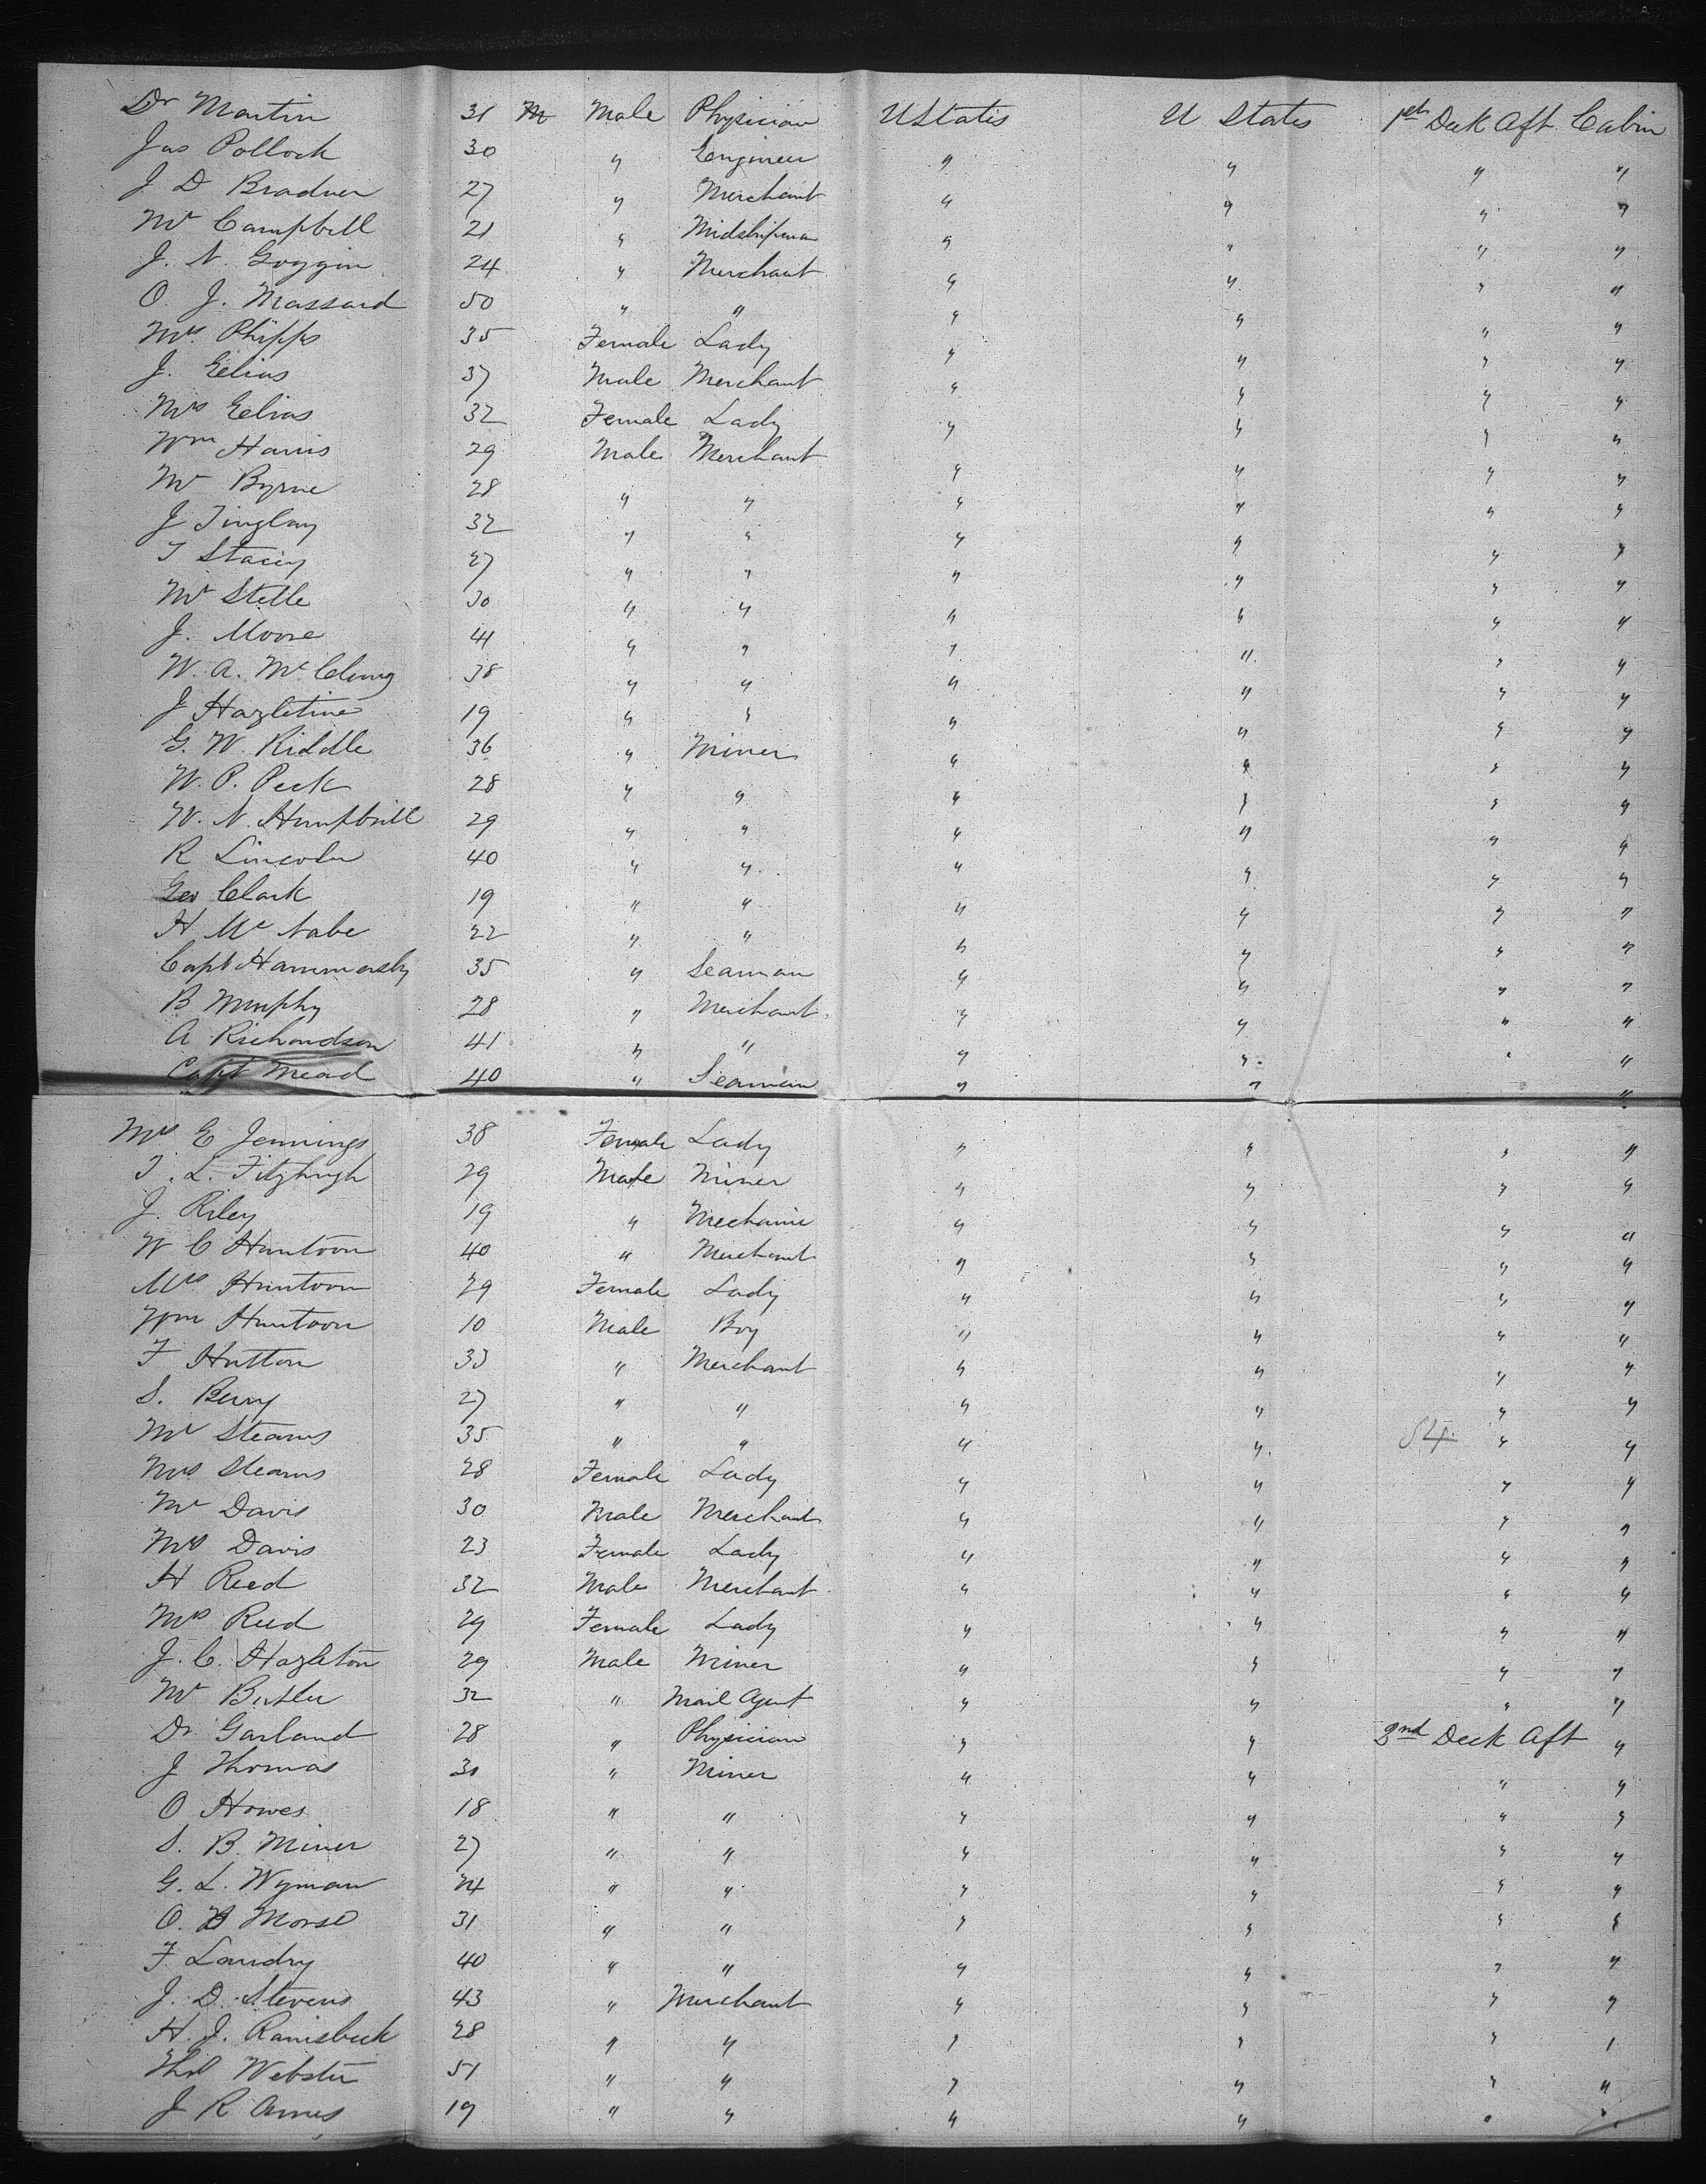 Dr Martin 31 Male Physician U States U States 1st Deck Aft Cabin
Jas Pollock 30 " Engineer " " " "
J D Bradner 27 " Merchant " " " "
Mr Campbell 21 " Midshipman " " " "
J. N. Goggin 24 " Merchant " " " "
O. J. Massard 50 " " " " " "
Mrs Phipps 35 Female Lady " " " "
J. Eelias 37 Male Merchant " " " "
Mrs Eelias 32 Female Lady " " " "
Wm Harris 29 Male Merchant " " " "
Mr Byrne 28 " " " " " "
J Tinglay 32 " " " " " "
T Stacey 27 " " " " " "
Mr Stelle 30 " " " " " "
J. Moore 41 " " " " " "
W. A. McClung 38 " " " " " "
J Hazletine 19 " " " " " "
G. W. Riddle 36 " Miner " " " "
W. P. Peck 28 " " " " " "
W. N. Humphrill 29 " " " " " "
R Lincoln 40 " " " " " "
Geo Clark 19 " " " " " "
H McNabe 22 " " " " " "
Capt Hammersly 35 " Seaman " " " "
B Murphy 28 " Merchant " " " "
A Richardson 41 " " " " " "
Capt Mead 40 " Seaman " " "
Mrs E Jennings 38 Female Lady " " " "
T. L. Fitzhugh 29 Male Miner " " " "
J. Riley 19 " Mechanic " " " "
W C Huntoon 40 " Merchant " " " "
Mrs Huntoon 29 Female Lady " " " "
Wm Huntoon 10 Male Boy " " " "
F Hutton 33 " Merchant " " " "
S. Berry 27 " " " " " "
Mr Stearns 35 " " " " 54 " "
Mrs Stearns 28 Female Lady " " " "
Mr Davis 30 Male Merchant " " " "
Mrs Davis 23 Female Lady " " " "
H Reed 32 Male Merchant " " " "
Mrs Reed 29 Female Lady " " " "
J. C. Hazleton 29 Male Miner " " " "
Mr Butler 32 " Mail Agent " " " "
Dr Garland 28 " Physician " " 2nd Deck Aft "
J Thomas 30 " Miner " " " "
O Howes 18 " " " " " "
S. B. Miner 27 " " " " " "
G. L. Wyman 24 " " " " " "
O. B Morse 31 " " " " " "
F Landry 40 " " " " " "
J. D. Stevens 43 " Merchant " " " "
H. J. Ramsbeck 28 " " " " " "
Thos Webster 51 " " " " " "
J R Ames 19 " " " " " "